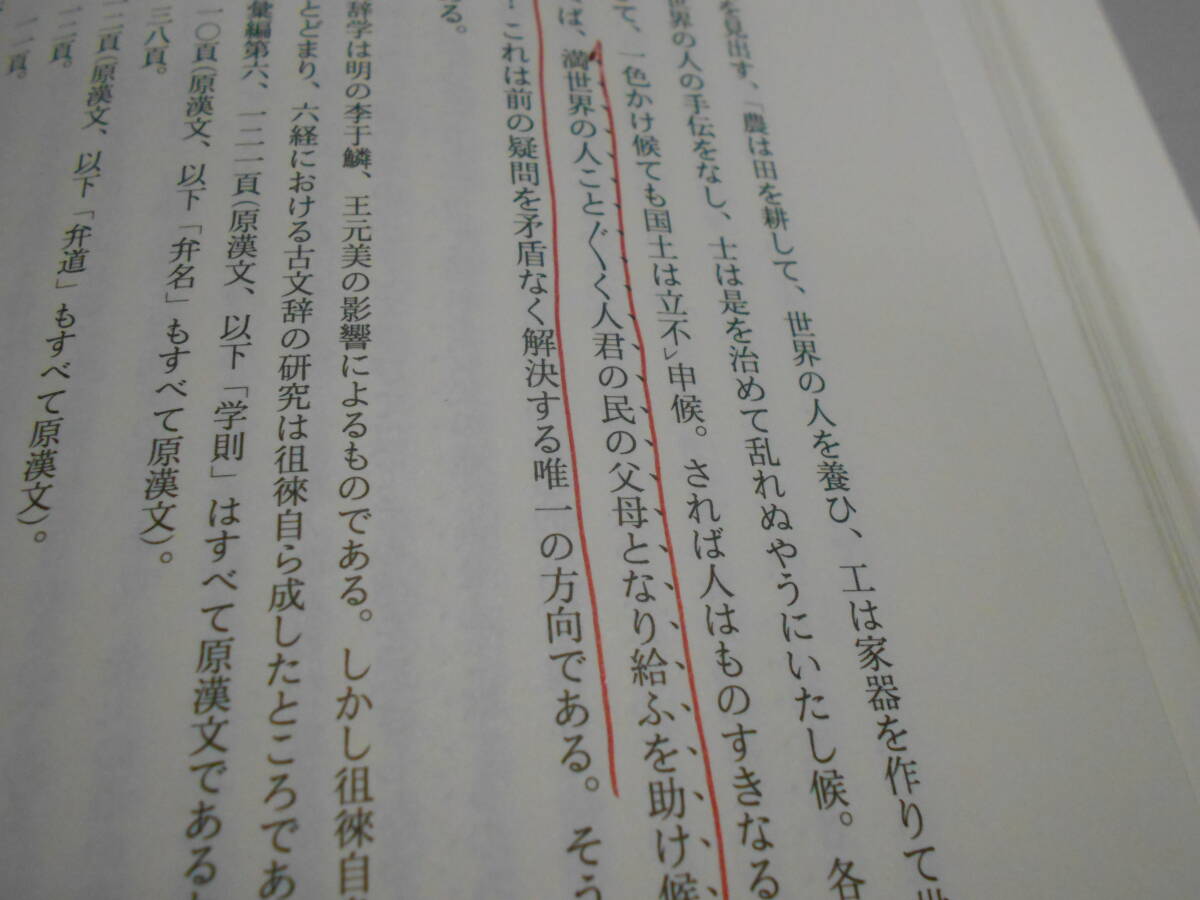 を見出す、「農は田を耕して、世界の人を養ひ、工は家器を作りて世
世界の人の手伝をなし、士は是を治めて乱れぬやうにいたし候。各
て、一色かけ候ても国土は立不レ申候。されば人はものすきなる
ば、満世界の人こと〴〵く人君の民の父母となり給ふを助け候
これは前の疑問を矛盾なく解決する唯一の方向である。そう
る。
辞学は明の李于鱗、王元美の影響によるものである。しかし徂徠自
とどまり、六経における古文辞の研究は徂徠自ら成したところであ
彙編第六、一二一頁(原漢文、以下「学則」はすべて原漢文である
一〇頁(原漢文、以下「弁名」もすべて原漢文)。
三八頁。
一二頁(原漢文、以下「弁道」もすべて原漢文)。
一二頁。
一一頁。